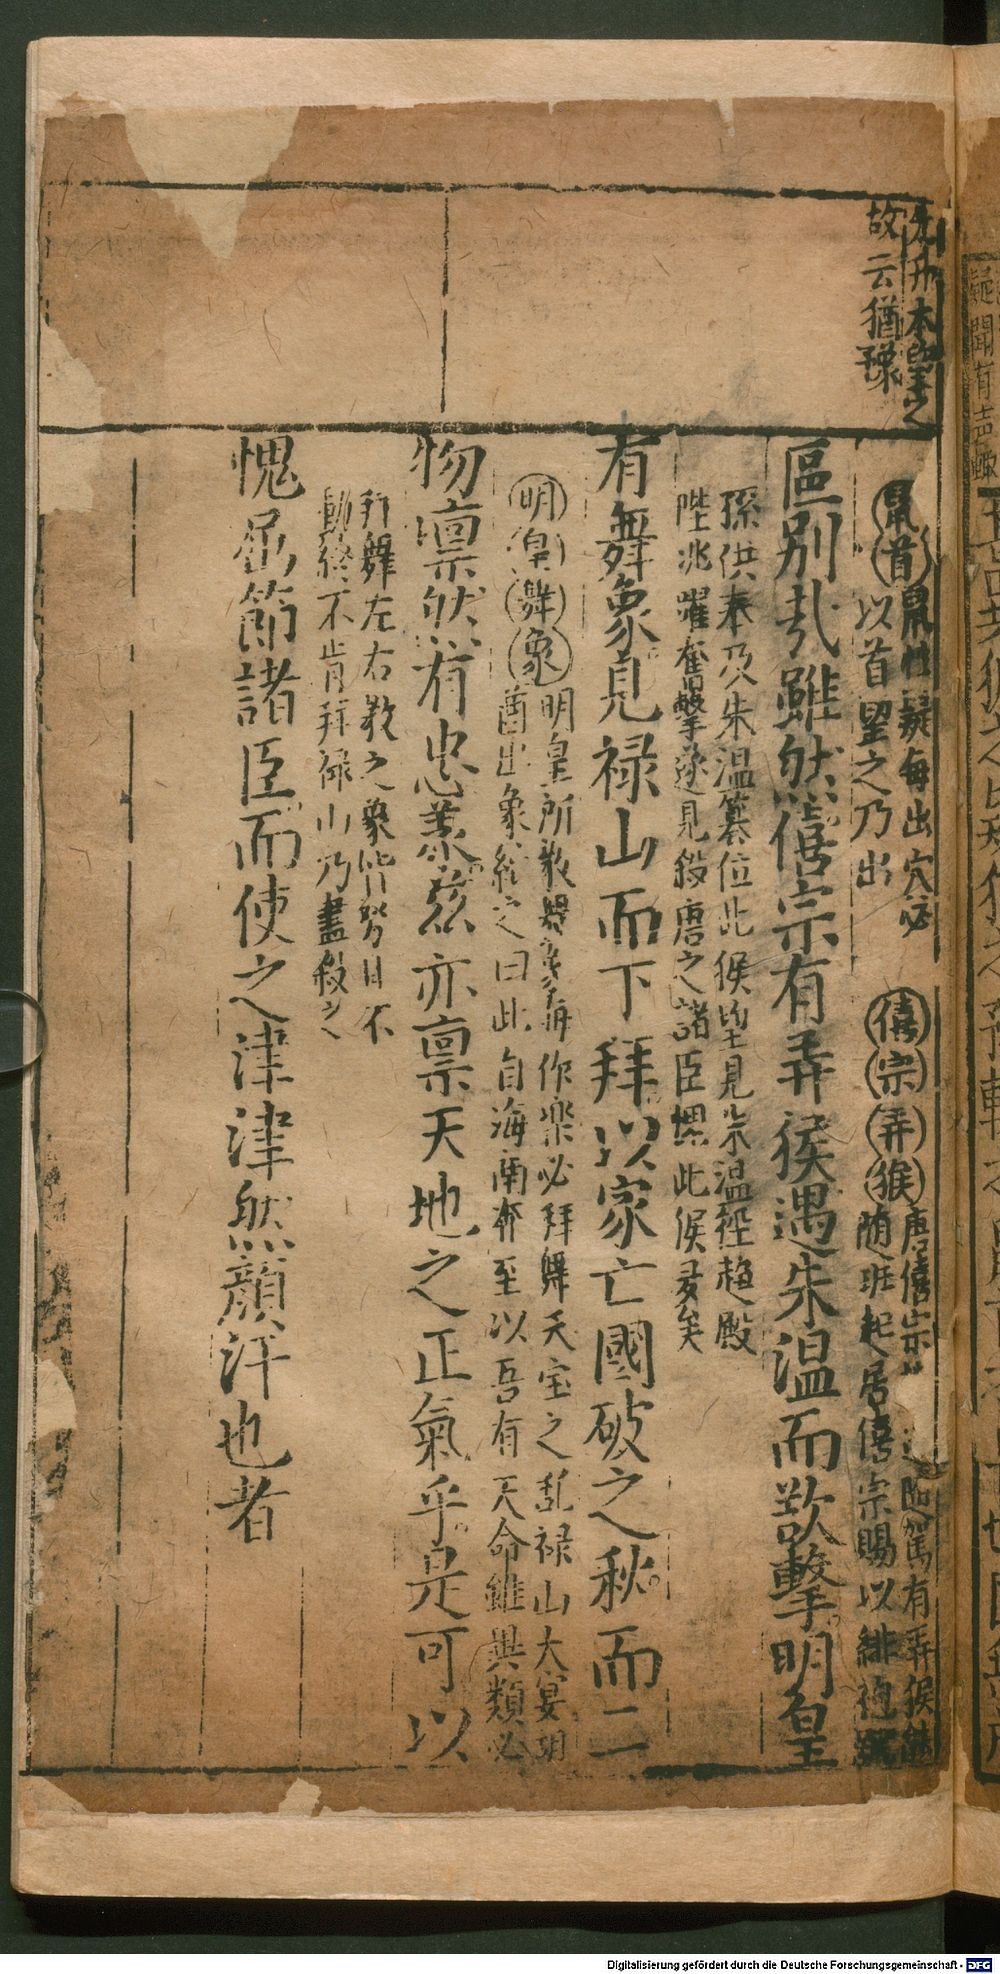 本望之
故云猶豫
鼠首鼠性疑每出穴必
以首望之乃出
僖宗弄猴唐僖宗 駕有弄猴
随班起居僖宗賜以緋袍
區別哉雖然僖宗有弄猴遇朱温而欲擊明皇
孫供奉乃朱温簒位此猴望見朱温徑趋殿
陛兆躍奮擊遂見殺唐之諸臣媿此猴多矣
有舞象見禄山而下拜以家亡國破之秋而二
明皇舞象明皇所教 象每作樂必拜舞天宝之乱禄山大宴
酋出象紿之曰此自海南奔至以吾有天命雖異類必
物禀然有忠義兹亦禀天地之正氣乎是可以
拜舞左右教之象皆努目不
動終不肯拜禄山乃盡殺之
愧屈節諸臣而使之津津然顔汗也者
疑聞有声
Digitalisierung gefördert durch die Deutsche Forschungsgemeinschaft - DFG